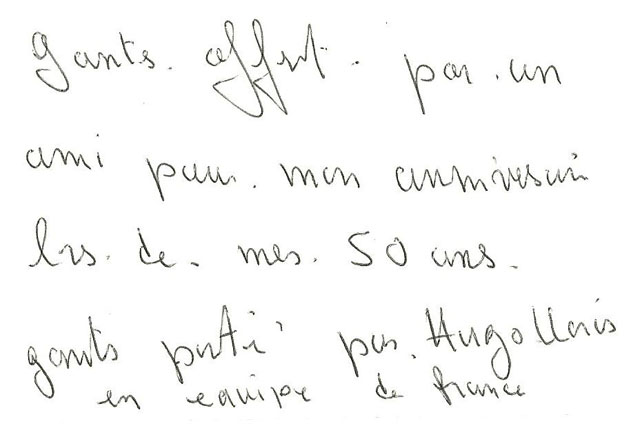 gants offert par un
ami pour mon anniversaire
lrs de mes 50 ans.
gants porté par Hugo lloris
en equipe de france